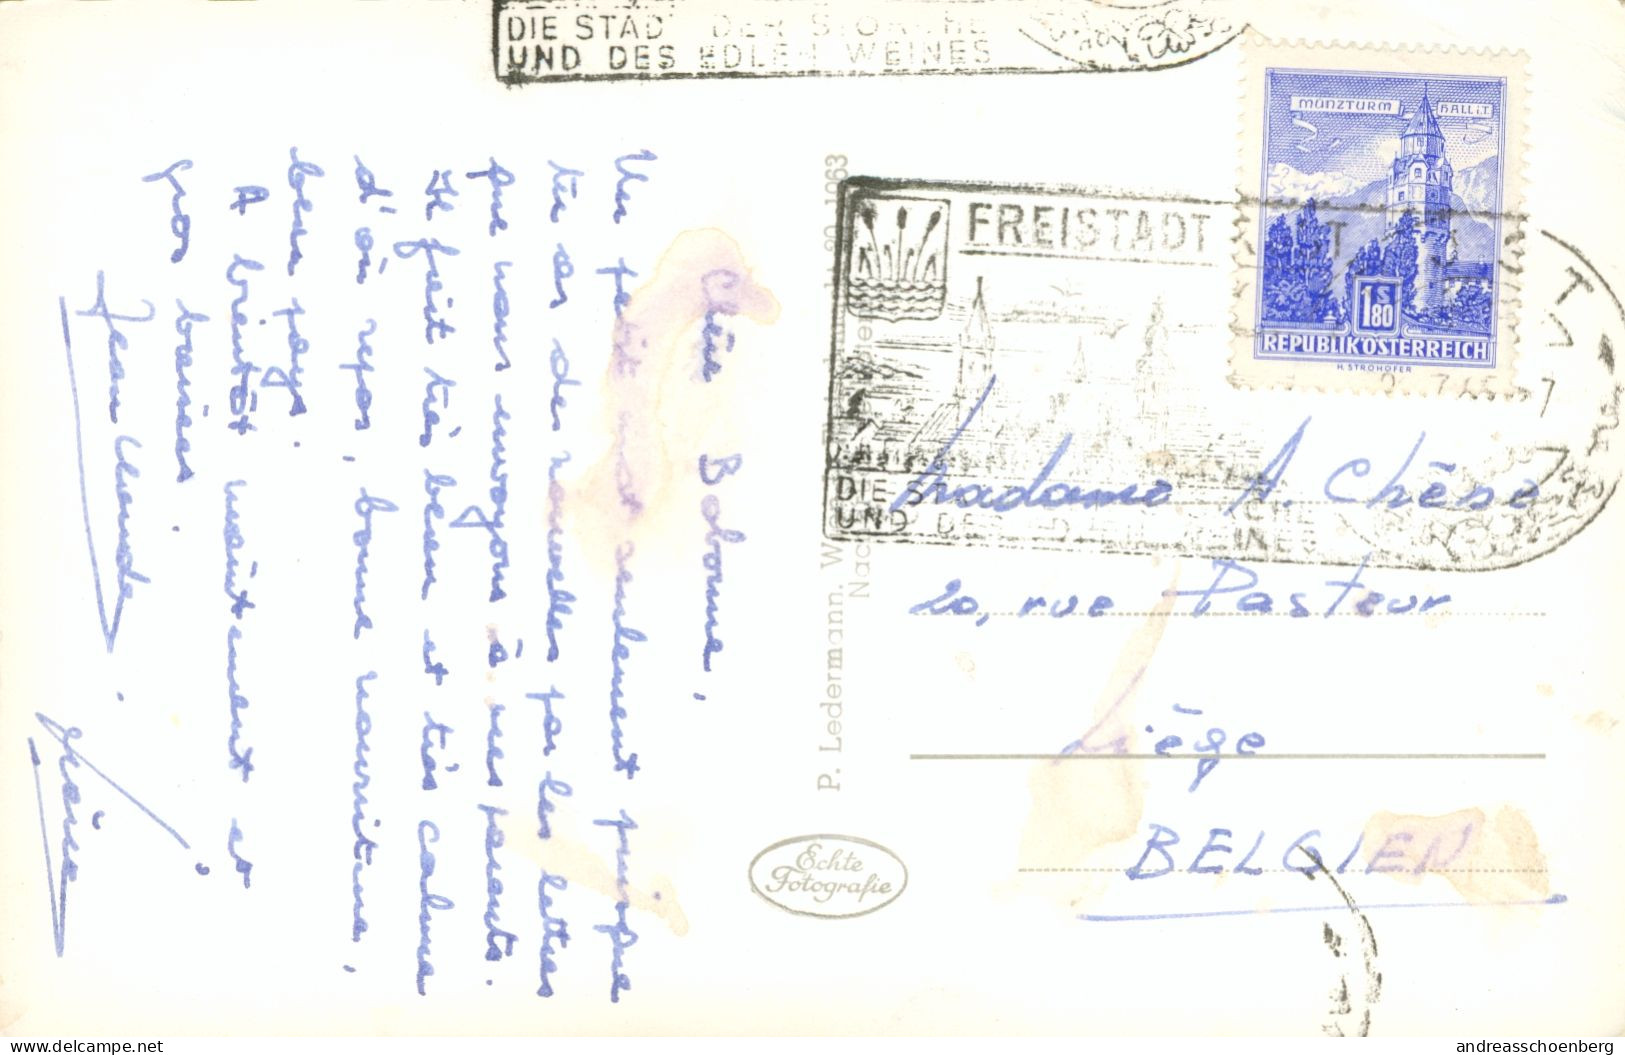 DIE STADT DER STÖRCHE
UND DES EDLEN WEINES
MÜNZTURM HALL i.T.
1 S 80
REPUBLIK ÖSTERREICH
H. STROHOFER
FREISTADT
DIE STADT STÖRCHE
UND DES EDLEN WEINES
Chère Bobonne,
Un petit mot seulement puisque
tu as des nouvelles par les lettres
que nous envoyons à mes parents.
Il fait très beau et très calme
d'où repos, bonne nourriture,
beau pays.
A bientôt maintenant et
gros baisers.
Jean Claude.
P. Ledermann. W
1963
Echte
Fotografie
Madame A. Chèse
20, rue Pasteur
Liège
BELGIEN
delcampe.net
andreasschoenberg